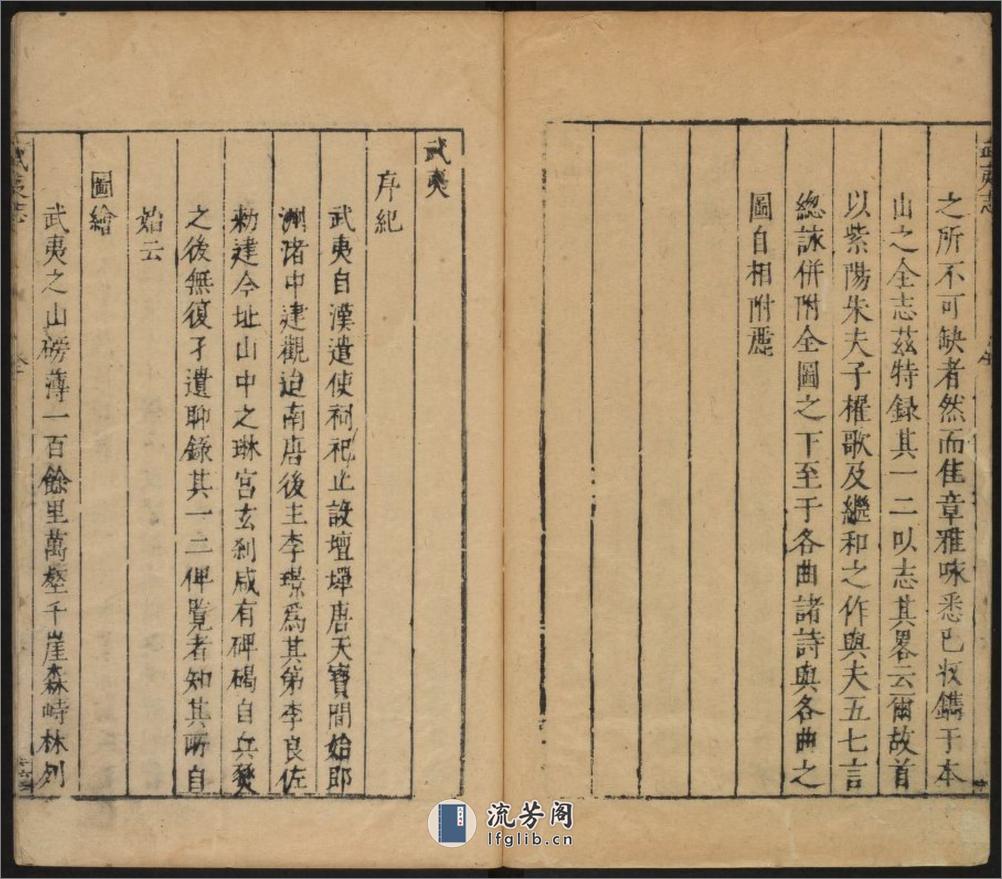 之所不可缺者然而佳章雅咏悉已收鐫于本
山之全志茲特録其一二以志其畧云爾故首
以紫陽朱夫子櫂歌及繼和之作與夫五七言
總詠併附全圖之下至于各曲諸詩與各曲之
圖自相附麗
武夷
序紀
武夷自漢遣使祠祀止設壇墠唐天寶間始即
洲渚中建觀迨南唐後主李璟爲其第李良佐
勑建今址山中之琳宮玄刹咸有碑碣自兵燹
之後無復孑遺聊錄其一二俾覽者知其所自
始云
圖繪
武夷之山磅薄一百餘里萬壑千崖森峙林列
武夷志
武夷志
流芳阁
lfglib.cn